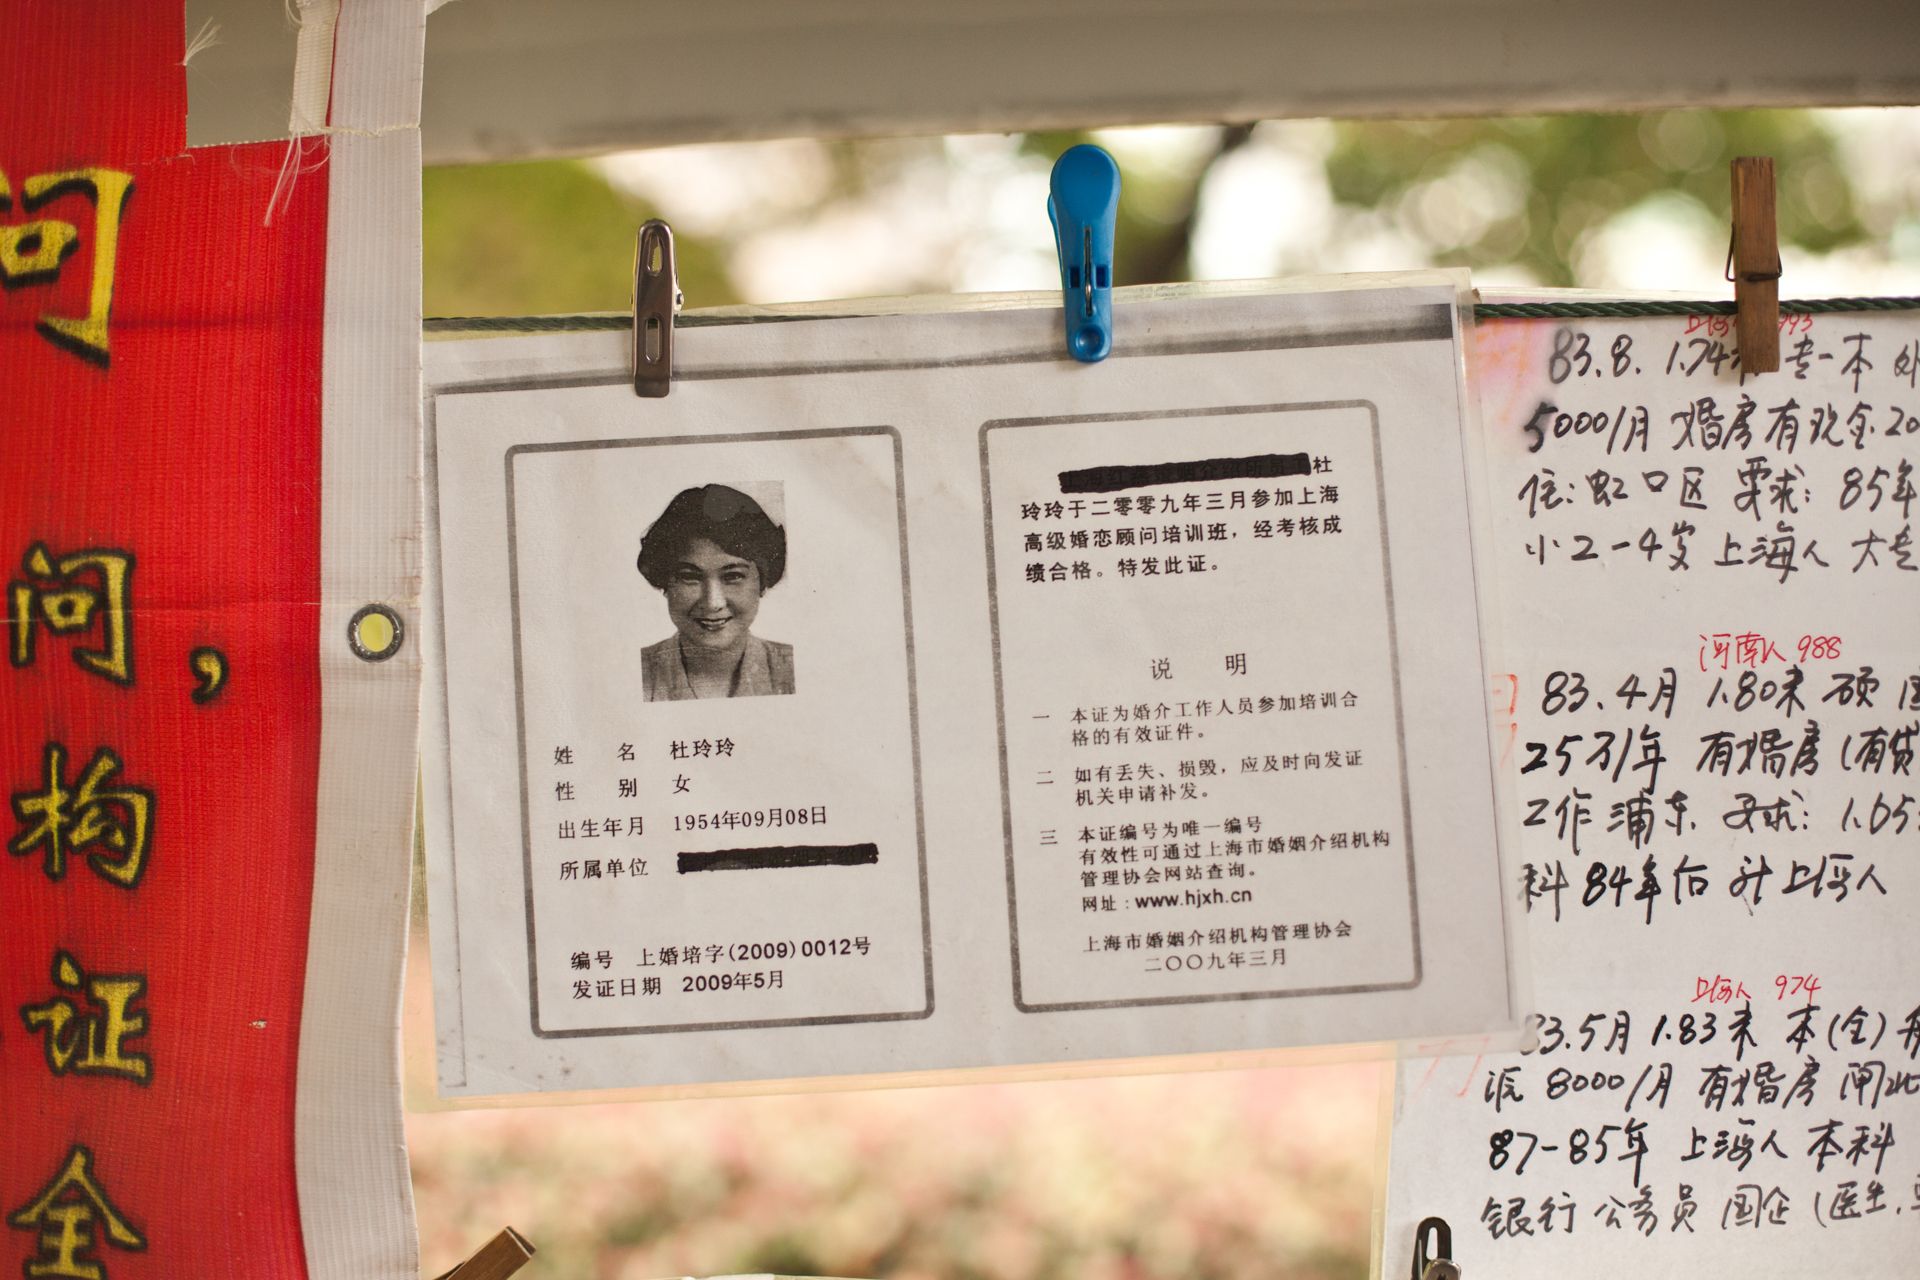 问
问，
构
证
全
姓 名 杜玲玲
性 别 女
出生年月 1954年09月08日
所属单位
编号 上婚培字(2009)0012号
发证日期 2009年5月
杜
玲玲于二零零九年三月参加上海
高级婚恋顾问培训班，经考核成
绩合格。特发此证。
说 明
一 本证为婚介工作人员参加培训合
格的有效证件。
二 如有丢失、损毁，应及时向发证
机关申请补发。
三 本证编号为唯一编号
有效性可通过上海市婚姻介绍机构
管理协会网站查询。
网址：www.hjxh.cn
上海市婚姻介绍机构管理协会
二〇〇九年三月
上海人 993
83.8. 1.74米 专-本
5000/月 婚房有现金20
住:虹口区 要求: 85年
小2-4岁 上海人 大专
河南人 988
83.4月 1.80米 硕
25万/年 有婚房(有贷
工作浦东. 要求: 1.65
科 84年后 上海人
上海人 974
83.5月 1.83米 本(全)
派 8000/月 有婚房 闸北
87-85年 上海人 本科
银行 公务员 国企 (医生.